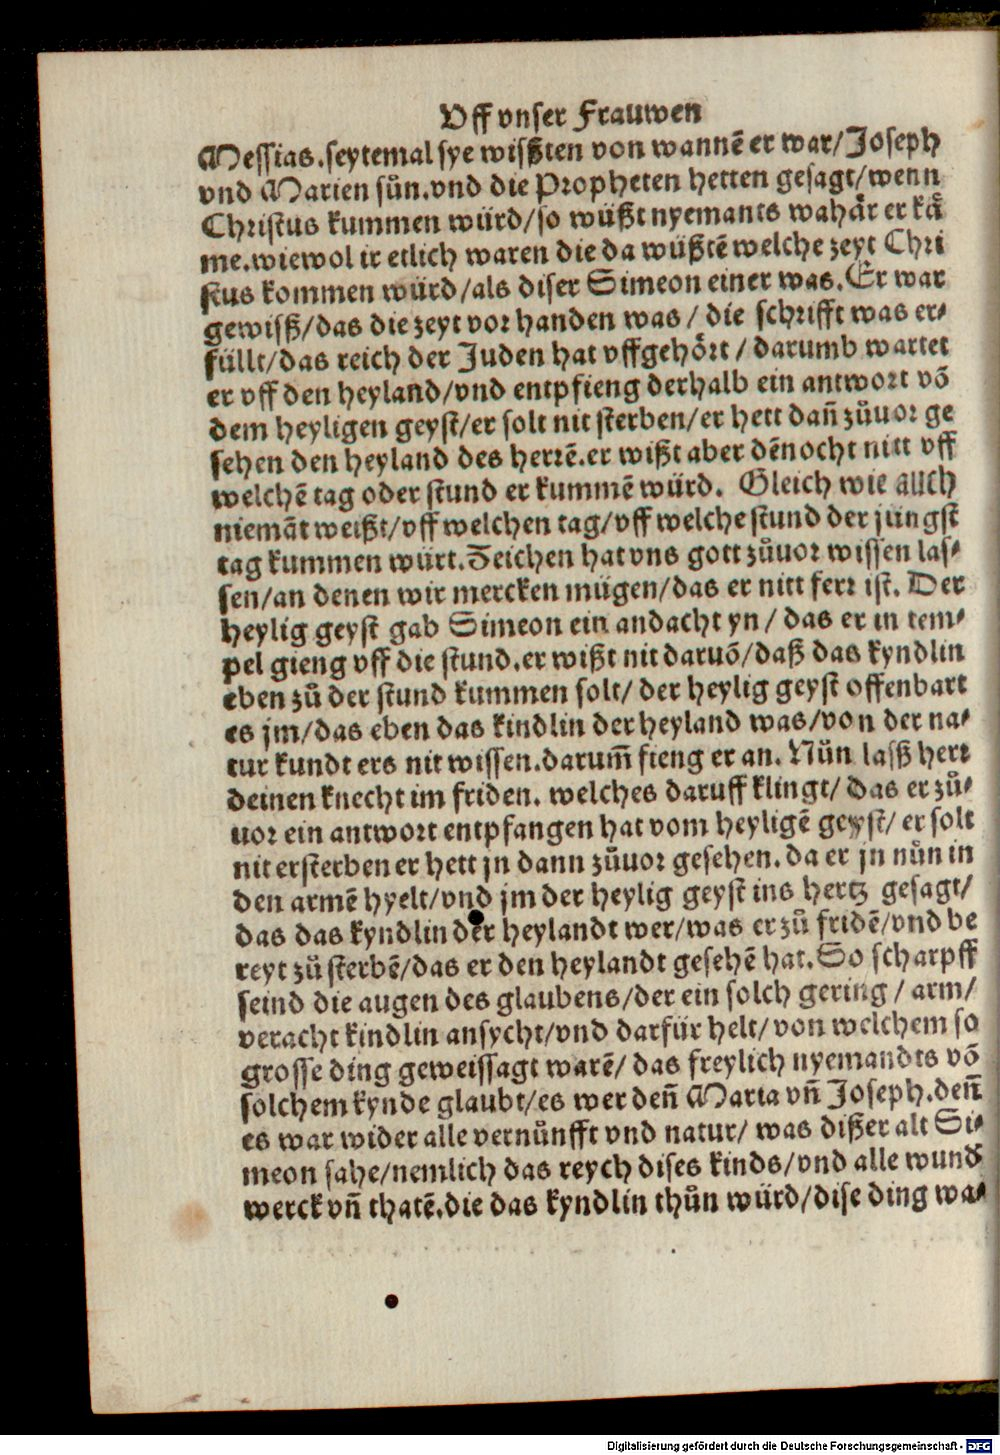 Uff vnser Frauwen
Messias.seytemal sye wisßten von wannē er war/Joseph
vnd Marien sůn.vnd die Propheten hetten gesagt/wenn
Christus kummen würd/so wüßt nyemants wahär er kä
me.wiewol ir etlich waren die da wüßtē welche zeyt Chri
stus kommen würd/als diser Simeon einer was.Er war
gewisß/das die zeyt vor handen was/ die schrifft was er⸗
füllt/das reich der Juden hat vffgehört / darumb wartet
er vff den heyland/vnd entpfieng derhalb ein antwort võ
dem heyligen geyst/er solt nit sterben/er hett dañ zůuor ge
sehen den heyland des herrē.er wißt aber dēnocht nitt vff
welchē tag oder stund er kummē würd. Gleich wie auch
niemāt weißt/vff welchen tag/vff welche stund der jungst
tag kummen würt.Zeichen hat vns gott zůuor wissen las⸗
sen/an denen wir mercken mügen/das er nitt ferr ist. Der
heylig geyst gab Simeon ein andacht yn / das er in tem⸗
pel gieng vff die stund.er wißt nit daruõ/daß das kyndlin
eben zů der stund kummen solt/ der heylig geyst offenbart
es jm/das eben das kindlin der heyland was/von der na⸗
tur kundt ers nit wissen.darum̃ fieng er an. Nůn lasß herr
deinen knecht im friden. welches daruff klingt/ das er zů⸗
uor ein antwort entpfangen hat vom heyligē geyst/ er solt
nit ersterben er hett jn dann zůuor gesehen. da er jn nůn in
den armē hyelt/vnd jm der heylig geyst ins hertz gesagt/
das das kyndlin der heylandt wer/was er zů fridē/vnd be
reyt zů sterbē/das er den heylandt gesehē hat.So scharpff
seind die augen des glaubens/der ein solch gering / arm/
veracht kindlin ansycht/vnd darfür helt/ von welchem so
grosse ding geweissagt warē/ das freylich nyemandts võ
solchem kynde glaubt/es wer deñ Maria vñ Joseph.deñ
es war wider alle vernůnfft vnd natur/ was dißer alt Si⸗
meon sahe/nemlich das reych dises kinds/vnd alle wund
werck vñ thatē.die das kyndlin thůn würd/dise ding wa⸗
Digitalisierung gefördert durch die Deutsche Forschungsgemeinschaft - DFG